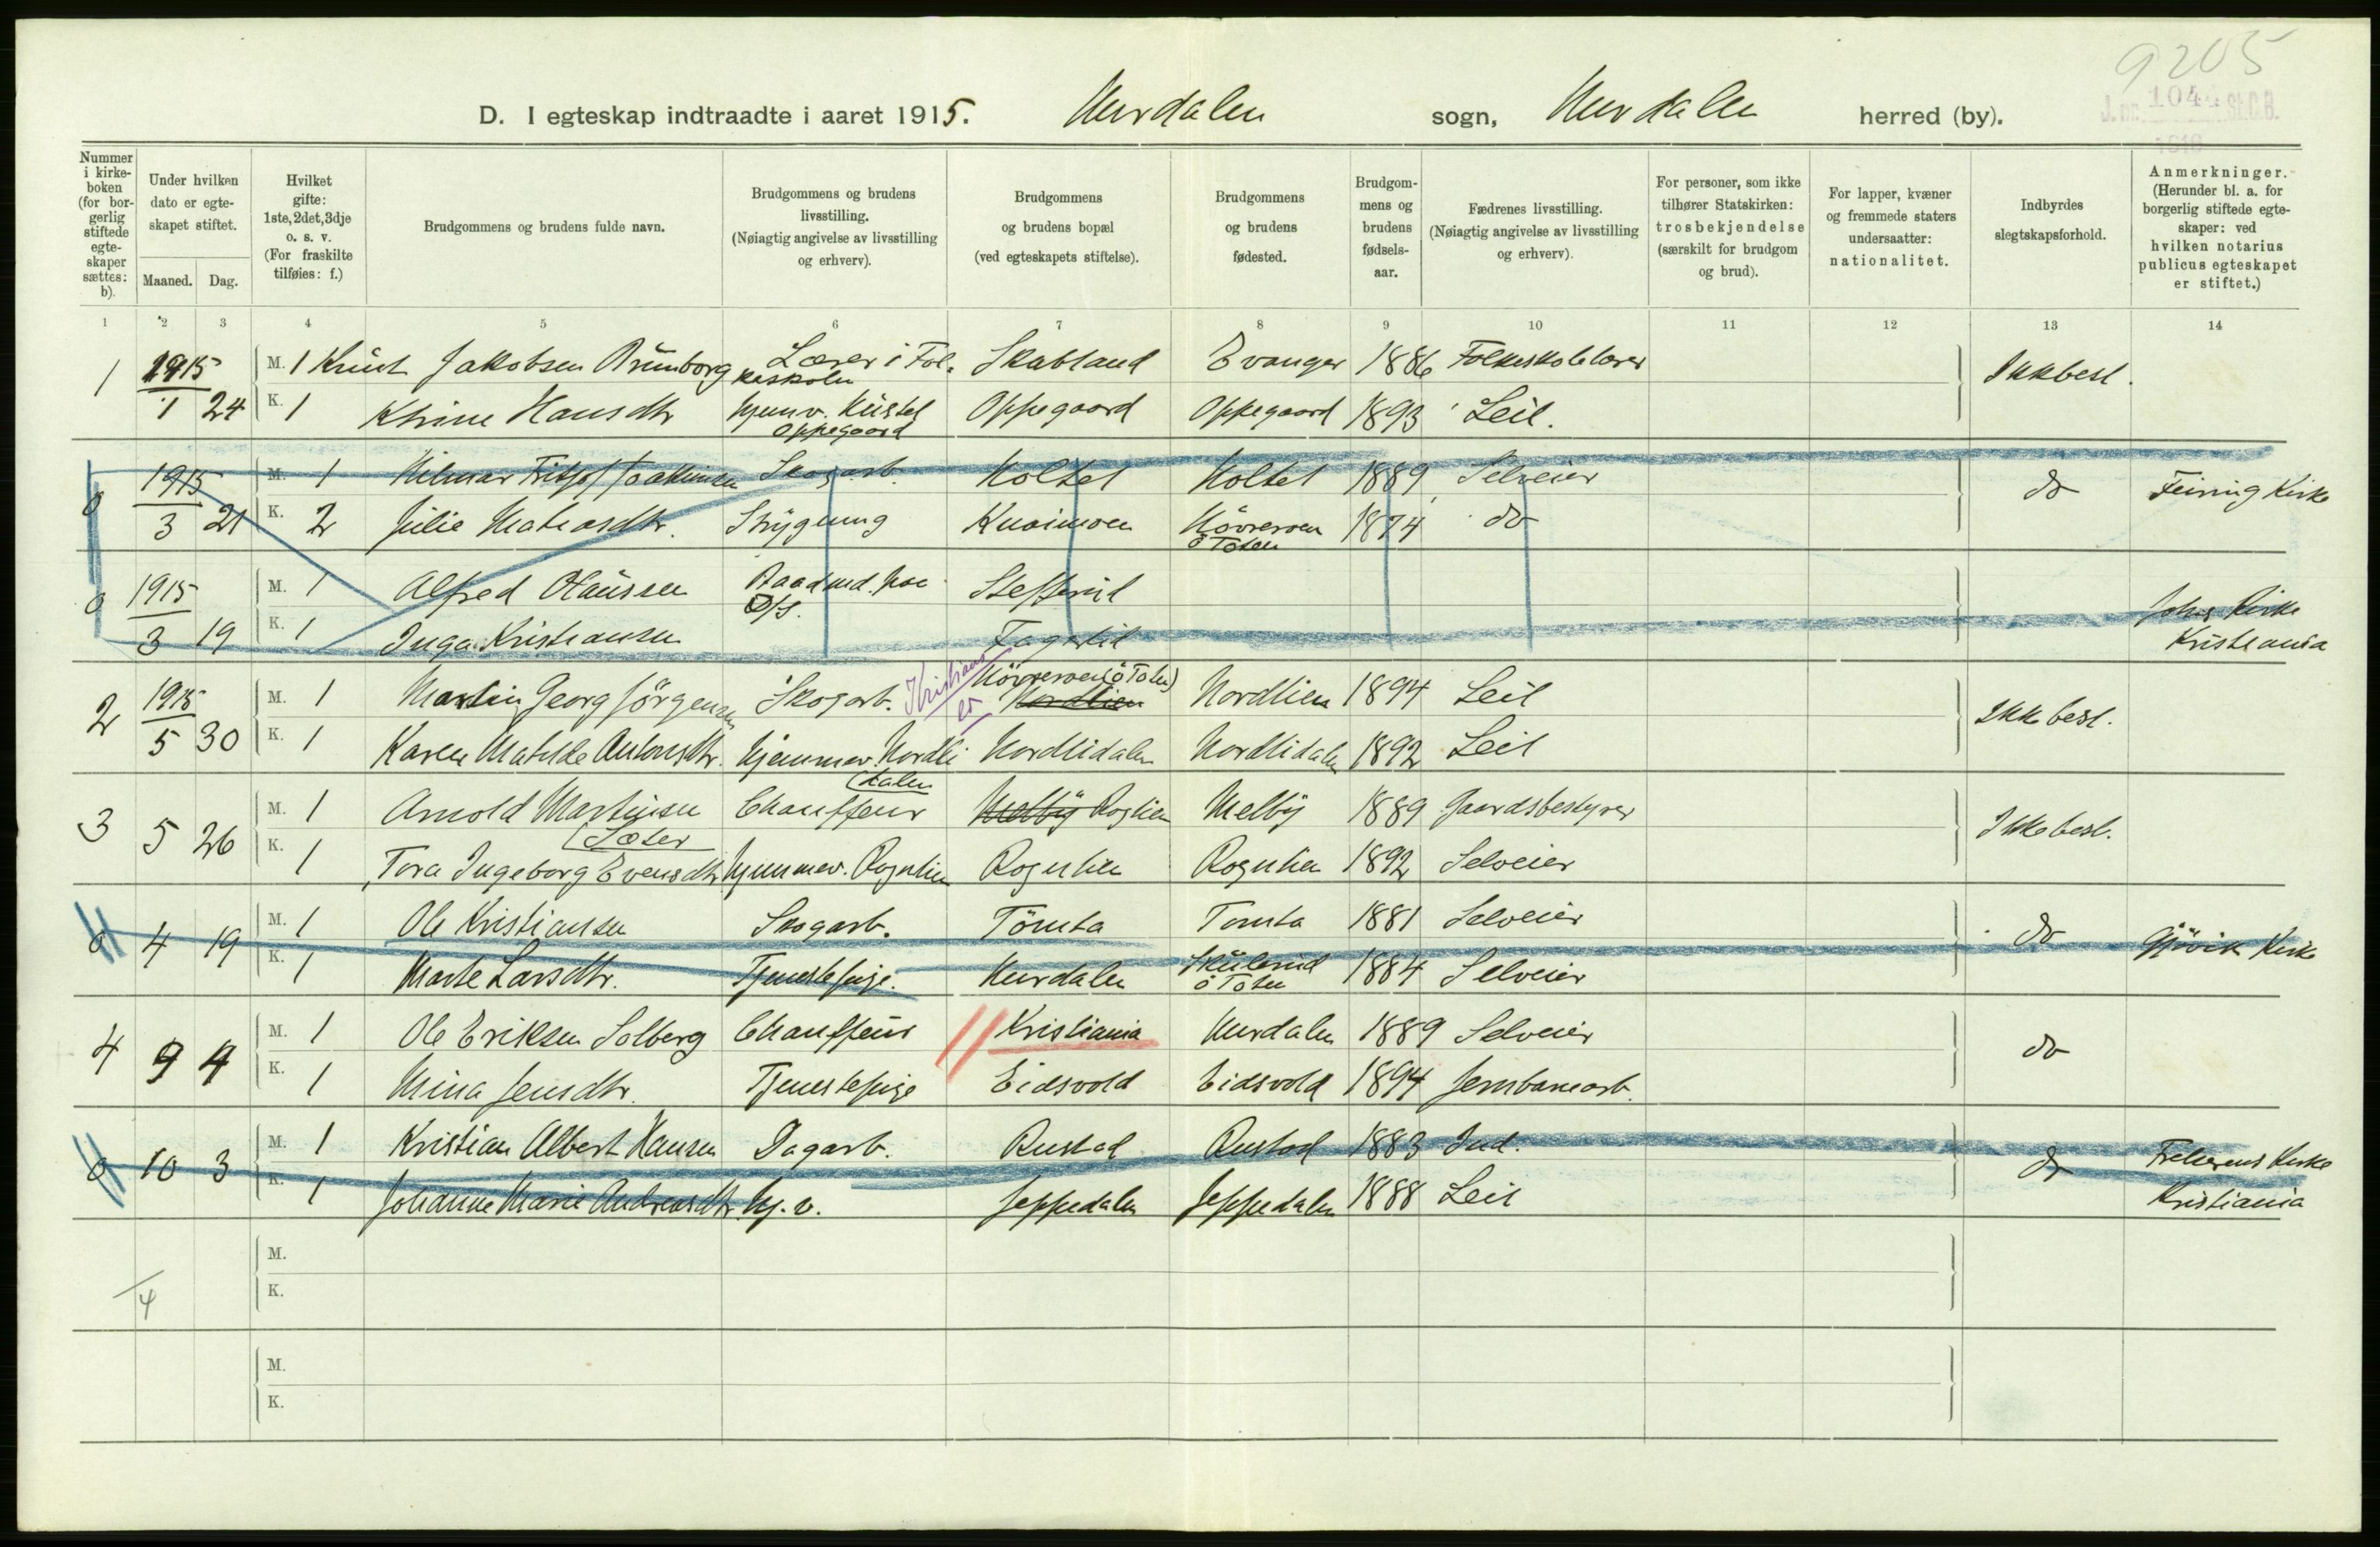 9205
J. nr. 1044 St.C.B.
1916
D. I egteskap indtraadte i aaret 1915. Hurdalen sogn, Hurdalen herred (by).
Nummer i kirkeboken (for borgerlig stiftede egteskaper sættes: b).
Under hvilken dato er egteskapet stiftet.
Maaned. Dag.
Hvilket gifte: 1ste, 2det, 3dje o. s. v. (For fraskilte tilføies: f.)
Brudgommens og brudens fulde navn.
Brudgommens og brudens livsstilling. (Nøiagtig angivelse av livsstilling og erhverv).
Brudgommens og brudens bopæl (ved egteskapets stiftelse).
Brudgommens og brudens fødested.
Brudgommens og brudens fødselsaar.
Fædrenes livsstilling. (Nøiagtig angivelse av livsstilling og erhverv).
For personer, som ikke tilhører Statskirken: trosbekjendelse (særskilt for brudgom og brud).
For lapper, kvæner og fremmede staters undersaatter: nationalitet.
Indbyrdes slegtskapsforhold.
Anmerkninger. (Herunder bl. a. for borgerlig stiftede egteskaper: ved hvilken notarius publicus egteskapet er stiftet.)
1 2 3 4 5 6 7 8 9 10 11 12 13 14
1 1915 M. 1 Knut Jakobsen Lærer i Folkeskolen Skabland Evanger 1886 Folkeskolelærer Ikkbesl.
1 24 K. 1 Hansdtr Oppegaard Oppegaard Oppegaard 1893 Leil.
0 1915 M. 1 Hilmar Fritjof Joakimsen Skogarb. Holtet Holtet 1889 Selveier do Feiring Kirke
3 21 K. 2 Julie Matiasdtr. Knaimoen ö Toten 1874 do
0 1915 M. 1 Alfred Olaussen Steffenrud Johs Kirke
3 19 K. 1 Inga Kristiansen Fagerlid Kristiania
2 1915 M. 1 Martin Georg Jörgensen Skogarb. Kristians (ö Toten) Nordlien Nordlien 1894 Leil Ikke besl.
5 30 K. 1 Karen Matilde Antonsdtr. Hjemmev. Nordlidalen Nordlidalen Nordlidalen 1892 Leil
3 5 26 M. 1 Arnold Martinsen Sæter Chauffeur Melby Rognlien Melby 1889 Gaardsbestyrer Ikke besl.
K. 1 Tora Ingeborg Evensdtr Hjemmev. Rognlien Rognlien Rognlien 1892 Selveier
0 4 19 M. 1 Ole Kristiansen Skogarb. Tömta Tomta 1881 Selveier do Gjövik Kirke
K. 1 Marte Larsdtr. Tjenestepige. Hurdalen Skulerud ö Toten 1884 Selveier
4 9 4 M. 1 Ole Eriksen Solberg Chauffeur Kristiania Hurdalen 1889 Selveier do
K. 1 Mina Jensdtr. Tjenestepige Eidsvold Eidsvold 1894 Jernbanearb.
0 10 3 M. 1 Kristian Albert Hansen Dagarb. Rustad Rustad 1883 Ind. do Frelserens Kirke
K. 1 Johanne Marie Andreasdtr. Hj. v. Jeppedalen Jeppedalen 1888 Leil Kristiania
M.
4
K.
M.
K.